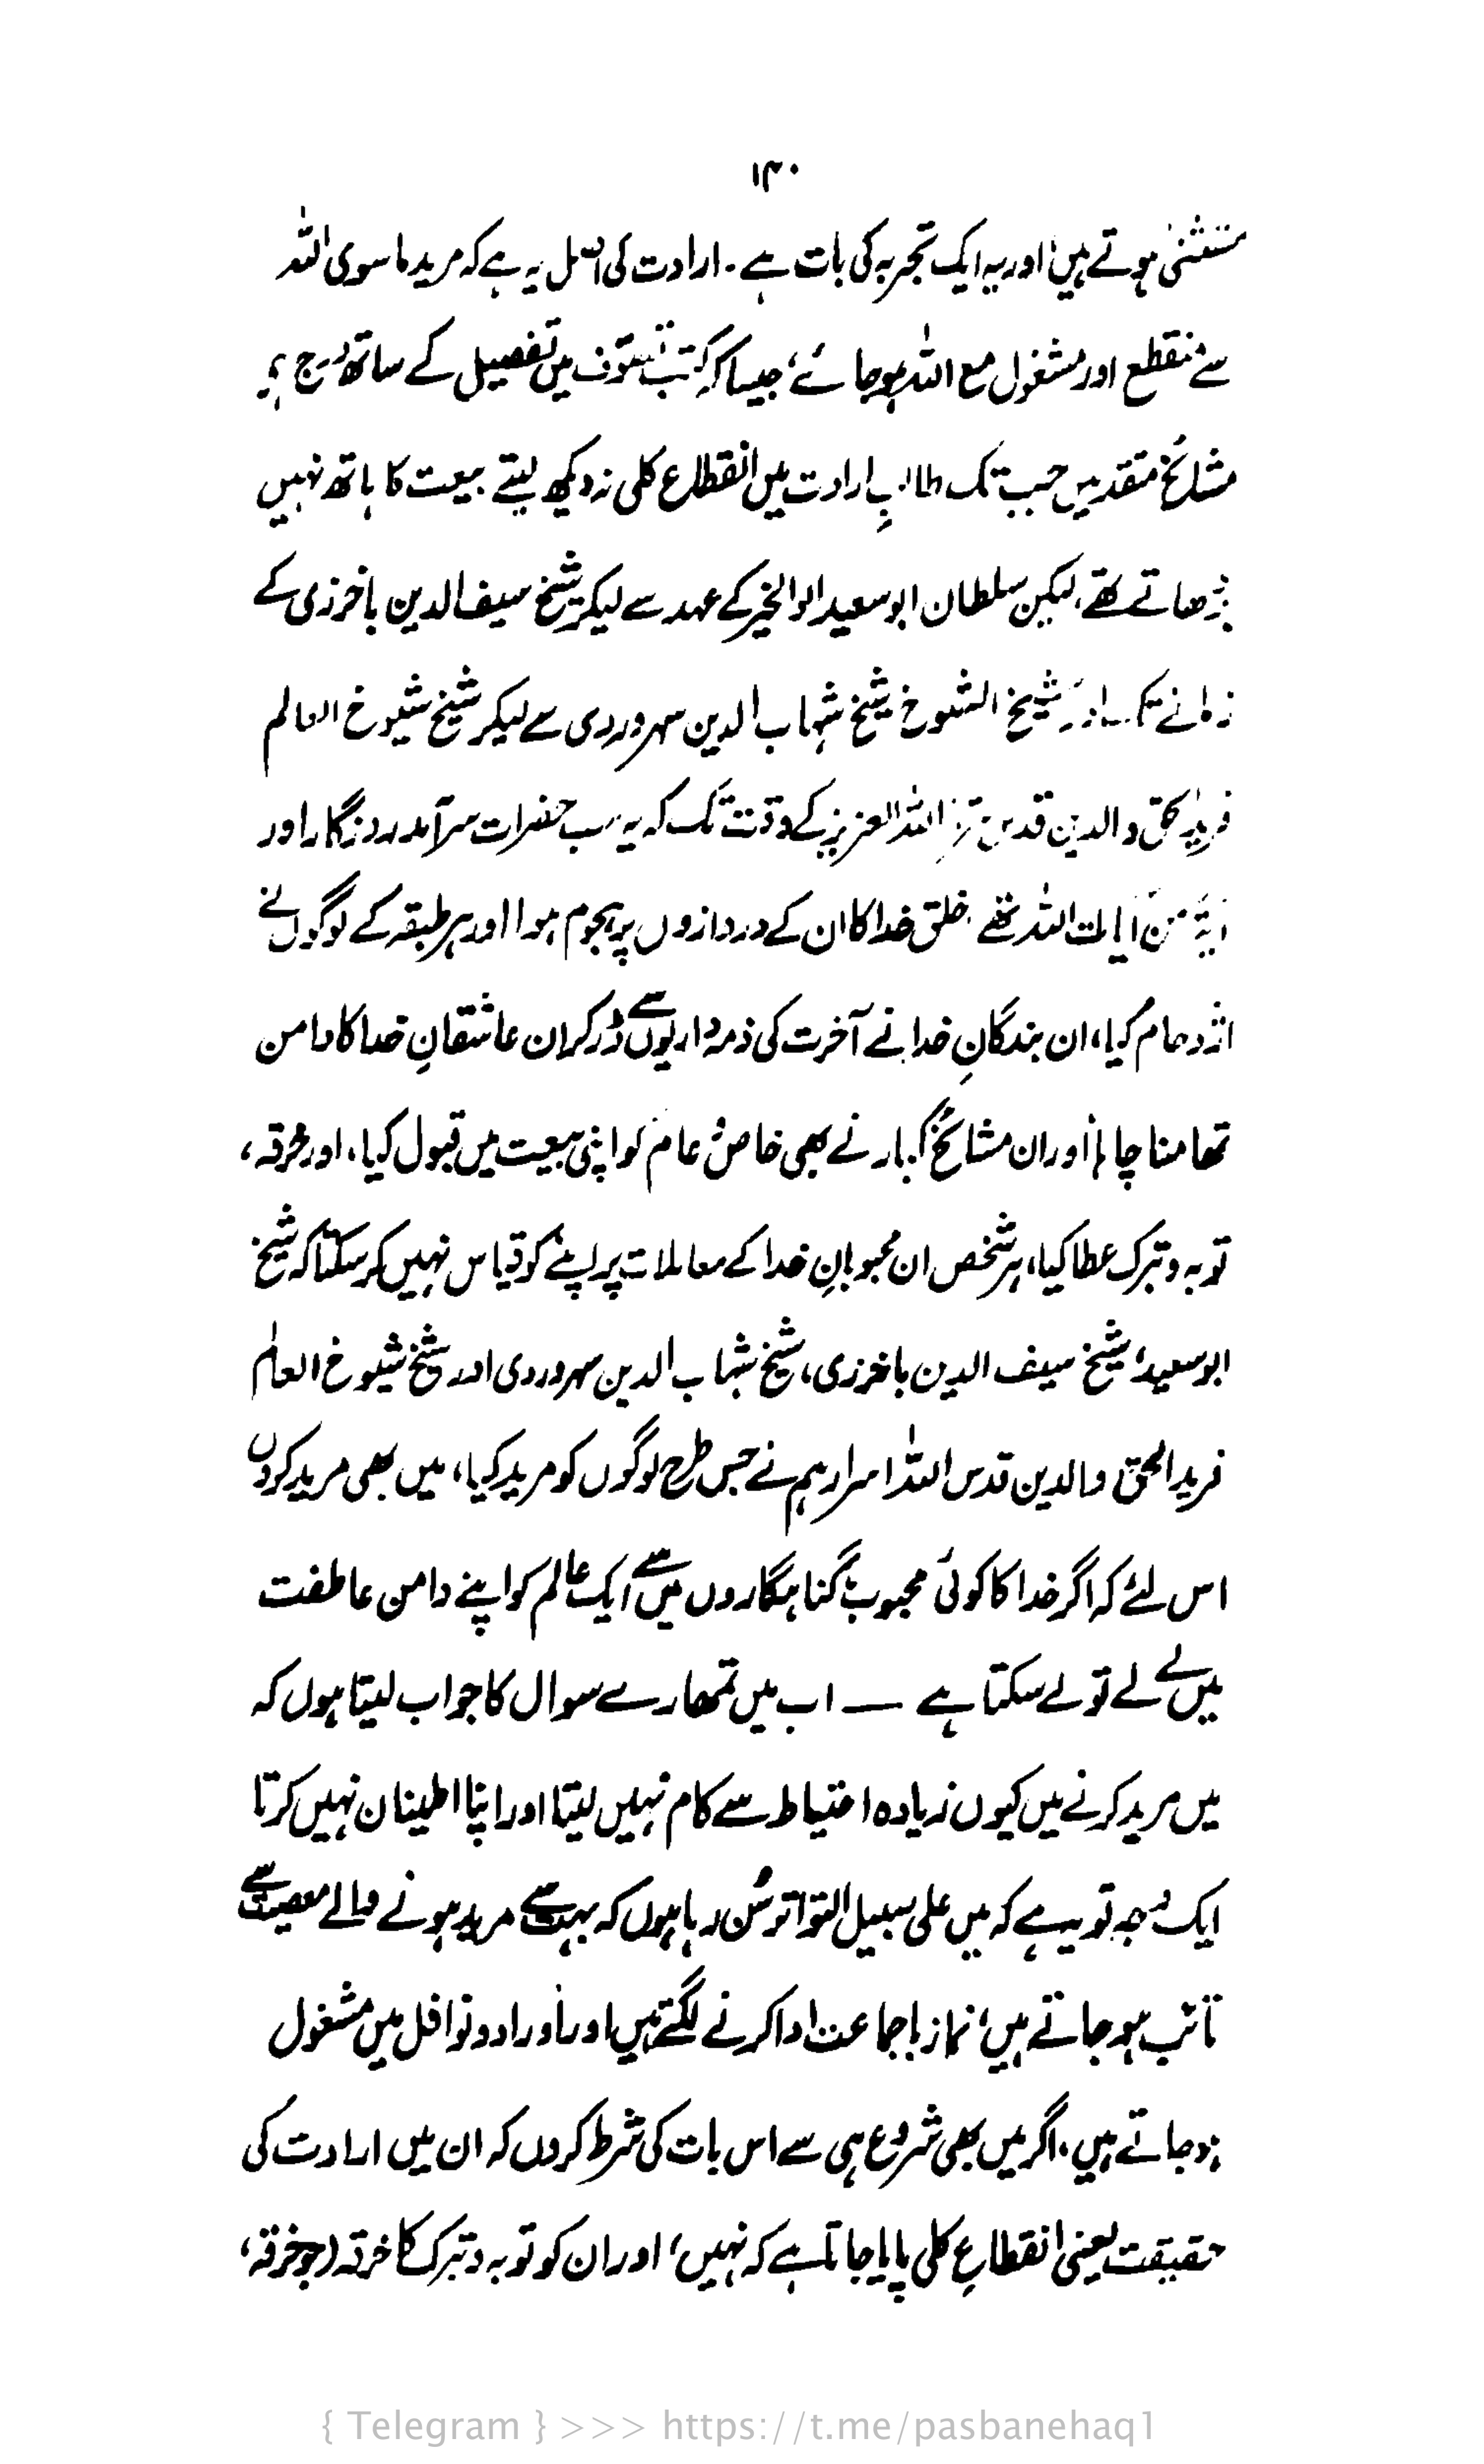 ۱۴۰
مستثنیٰ ہوتے ہیں اور یہ ایک تجربہ کی بات ہے۔ ارادت کی اصل یہ ہے کہ مرید ماسوی اللہ
سے منقطع اور مشغول مع اللہ ہو جائے، جیسا کہ کتب تصوّف میں تفصیل کے ساتھ درج ہے،
مشائخ متقدمین جب تک طالبِ ارادت میں انقطاع کلی نہ دیکھ لیتے بیعت کا ہاتھ نہیں
بڑھاتے تھے، لیکن سلطان ابوسعید ابوالخیر کے عہد سے لیکر شیخ سیف الدین باخرزی کے
زمانے تک اور شیخ الشیوخ شیخ شہاب الدین سہروردی سے لیکر شیخ شیوخ العالم
فرید الحق والدین قدس سرہ اللہ العزیز کے وقت تک کہ یہ سب حضرات سرآمد روزگار اور
آیۃ من آیات اللہ تھے، خلق خدا کا ان کے دروازوں پر ہجوم ہوا اور ہر طبقہ کے لوگوں نے
اژدحام کیا، ان بندگانِ خدا نے آخرت کی ذمہ داریوں سے ڈر کر ان عاشقانِ خدا کا دامن
تھامنا چاہا، اور ان مشائخ کبار نے بھی خاص و عام کو اپنی بیعت میں قبول کیا، اور خرقہ،
توبہ و تبرک عطا کیا، ہر شخص ان محبوبانِ خدا کے معاملات پر اپنے کو قیاس نہیں کرسکتا کہ شیخ
ابوسعید، شیخ سیف الدین باخرزی، شیخ شہاب الدین سہروردی اور شیخ شیوخ العالم
فرید الحق والدین قدس اللہ اسرارہم نے جس طرح لوگوں کو مرید کیا، میں بھی مرید کروں
اس لئے کہ اگر خدا کا کوئی محبوب گناہگاروں میں سے ایک عالم کو اپنے دامن عاطفت
میں لے لے تو لے سکتا ہے — اب میں تمھارے سوال کا جواب لیتا ہوں کہ
میں مرید کرنے میں کیوں زیادہ احتیاط سے کام نہیں لیتا اور اپنا اطمینان نہیں کرتا
ایک وجہ تو یہ ہے کہ میں علی سبیل التواتر سُن رہا ہوں کہ بہت سے مرید ہونے والے معصیت سے
تائب ہو جاتے ہیں، نماز باجماعت ادا کرنے لگتے ہیں اور اَوراد و نوافل میں مشغول
ہو جاتے ہیں، اگر میں بھی شروع ہی سے اس بات کی شرط کروں کہ ان میں ارادت کی
حقیقت یعنی انقطاعِ کلی پایا جاتا ہے کہ نہیں، اور ان کو توبہ و تبرک کا خرقہ (جو خرقہ،
{ Telegram } >>> https://t.me/pasbanehaq1